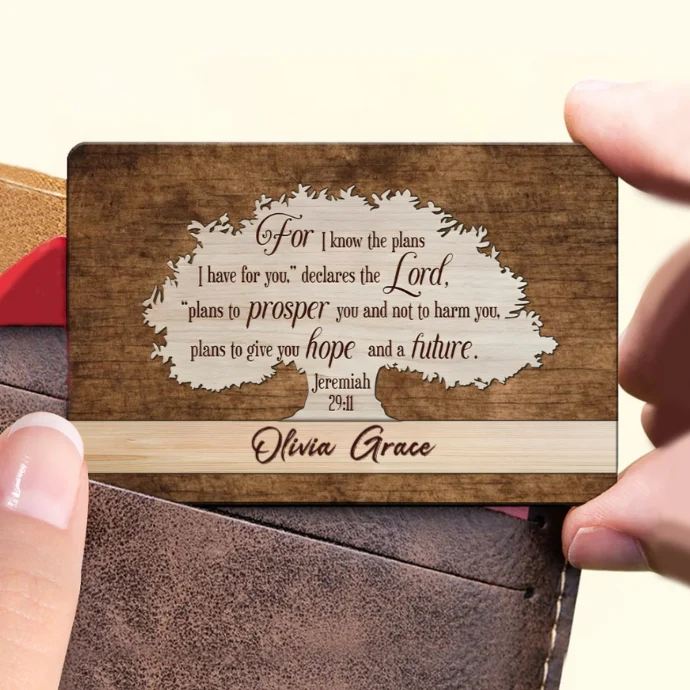 For I know the plans
I have for you,” declares the Lord,
“plans to prosper you and not to harm you,
plans to give you hope and a future.
Jeremiah
29:11
Olivia Grace